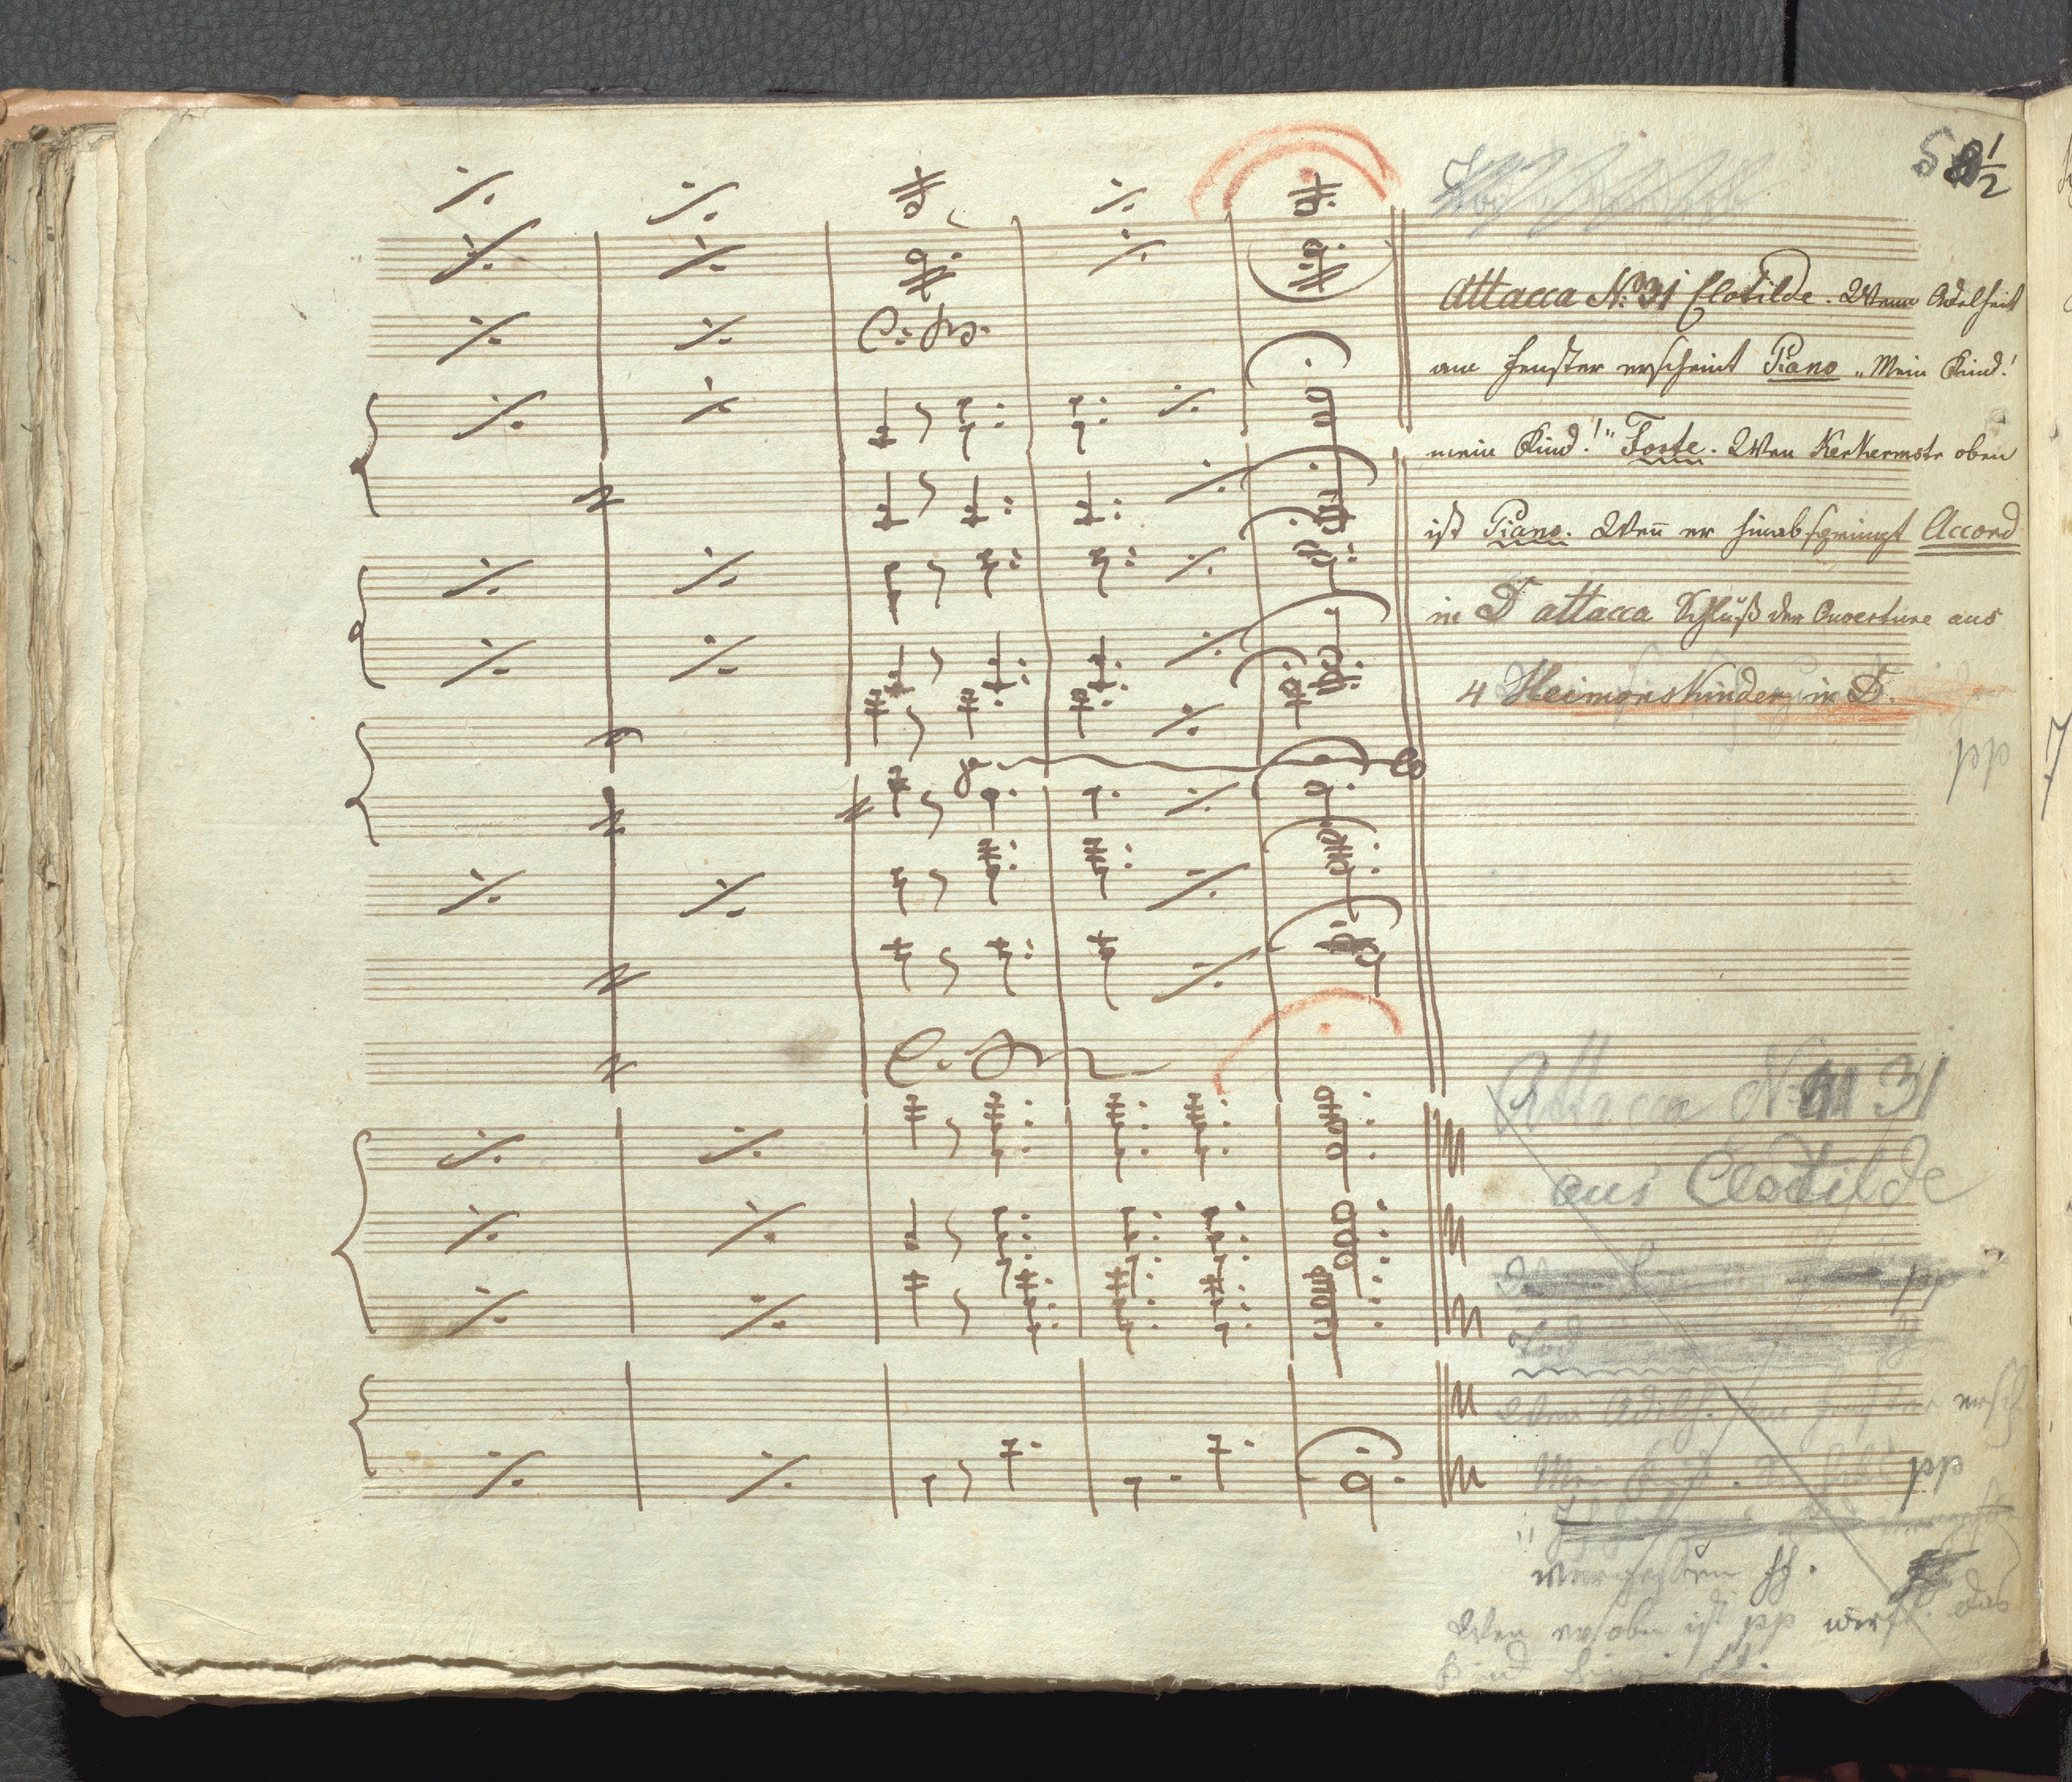 8 1/2
Attacca No: 31 Clotilde. Wenn Adelheit
am Fenster erscheint Piano „Mein Kind!
mein Kind!" Forte. Wen Kerkermstr oben
ist Piano. Weñ er hinabspringt Accord
in D attacca Schluß der Ouverture aus
4 Heimonskinder in D.
pp
Attacca No 31
aus Clotilde
pp
Wen Adelh. am Fenster ersch
Mein Kind. pp
vergessen ff.
Wen er oben ist pp wirft das
Kind